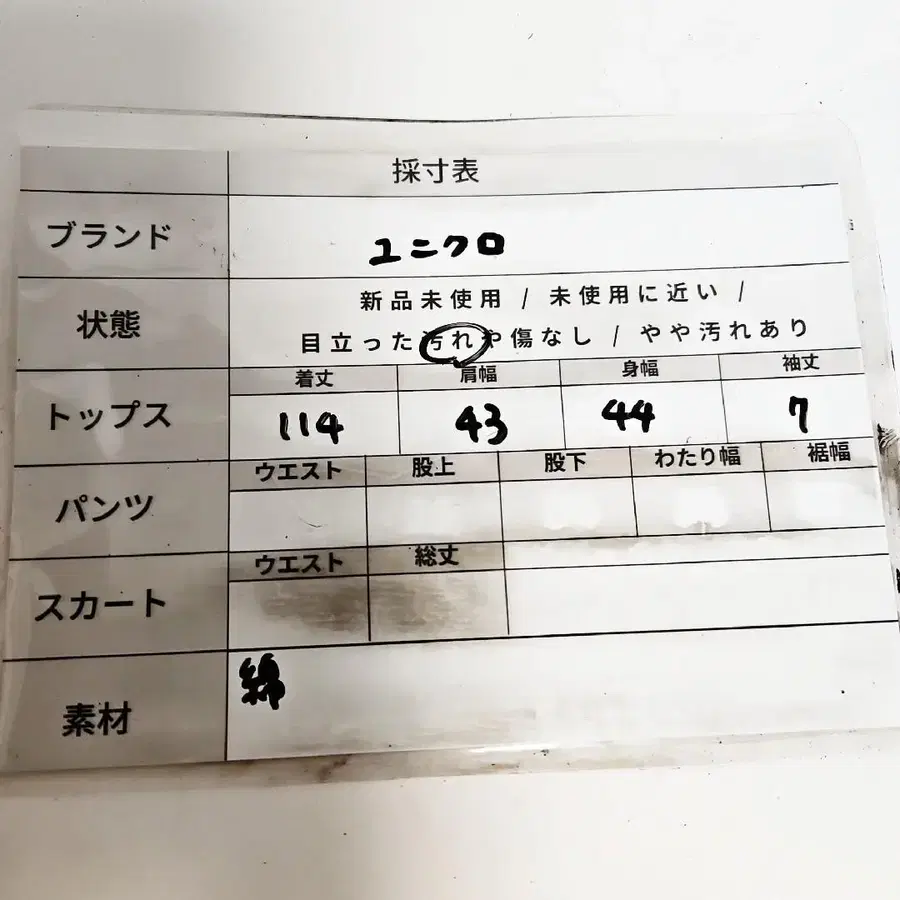 採寸表
ブランド
ユニクロ
状態
新品未使用 / 未使用に近い /
目立った汚れや傷なし / やや汚れあり
トップス
着丈 肩幅 身幅 袖丈
114 43 44 7
パンツ
ウエスト 股上 股下 わたり幅 裾幅
スカート
ウエスト 総丈
素材
綿